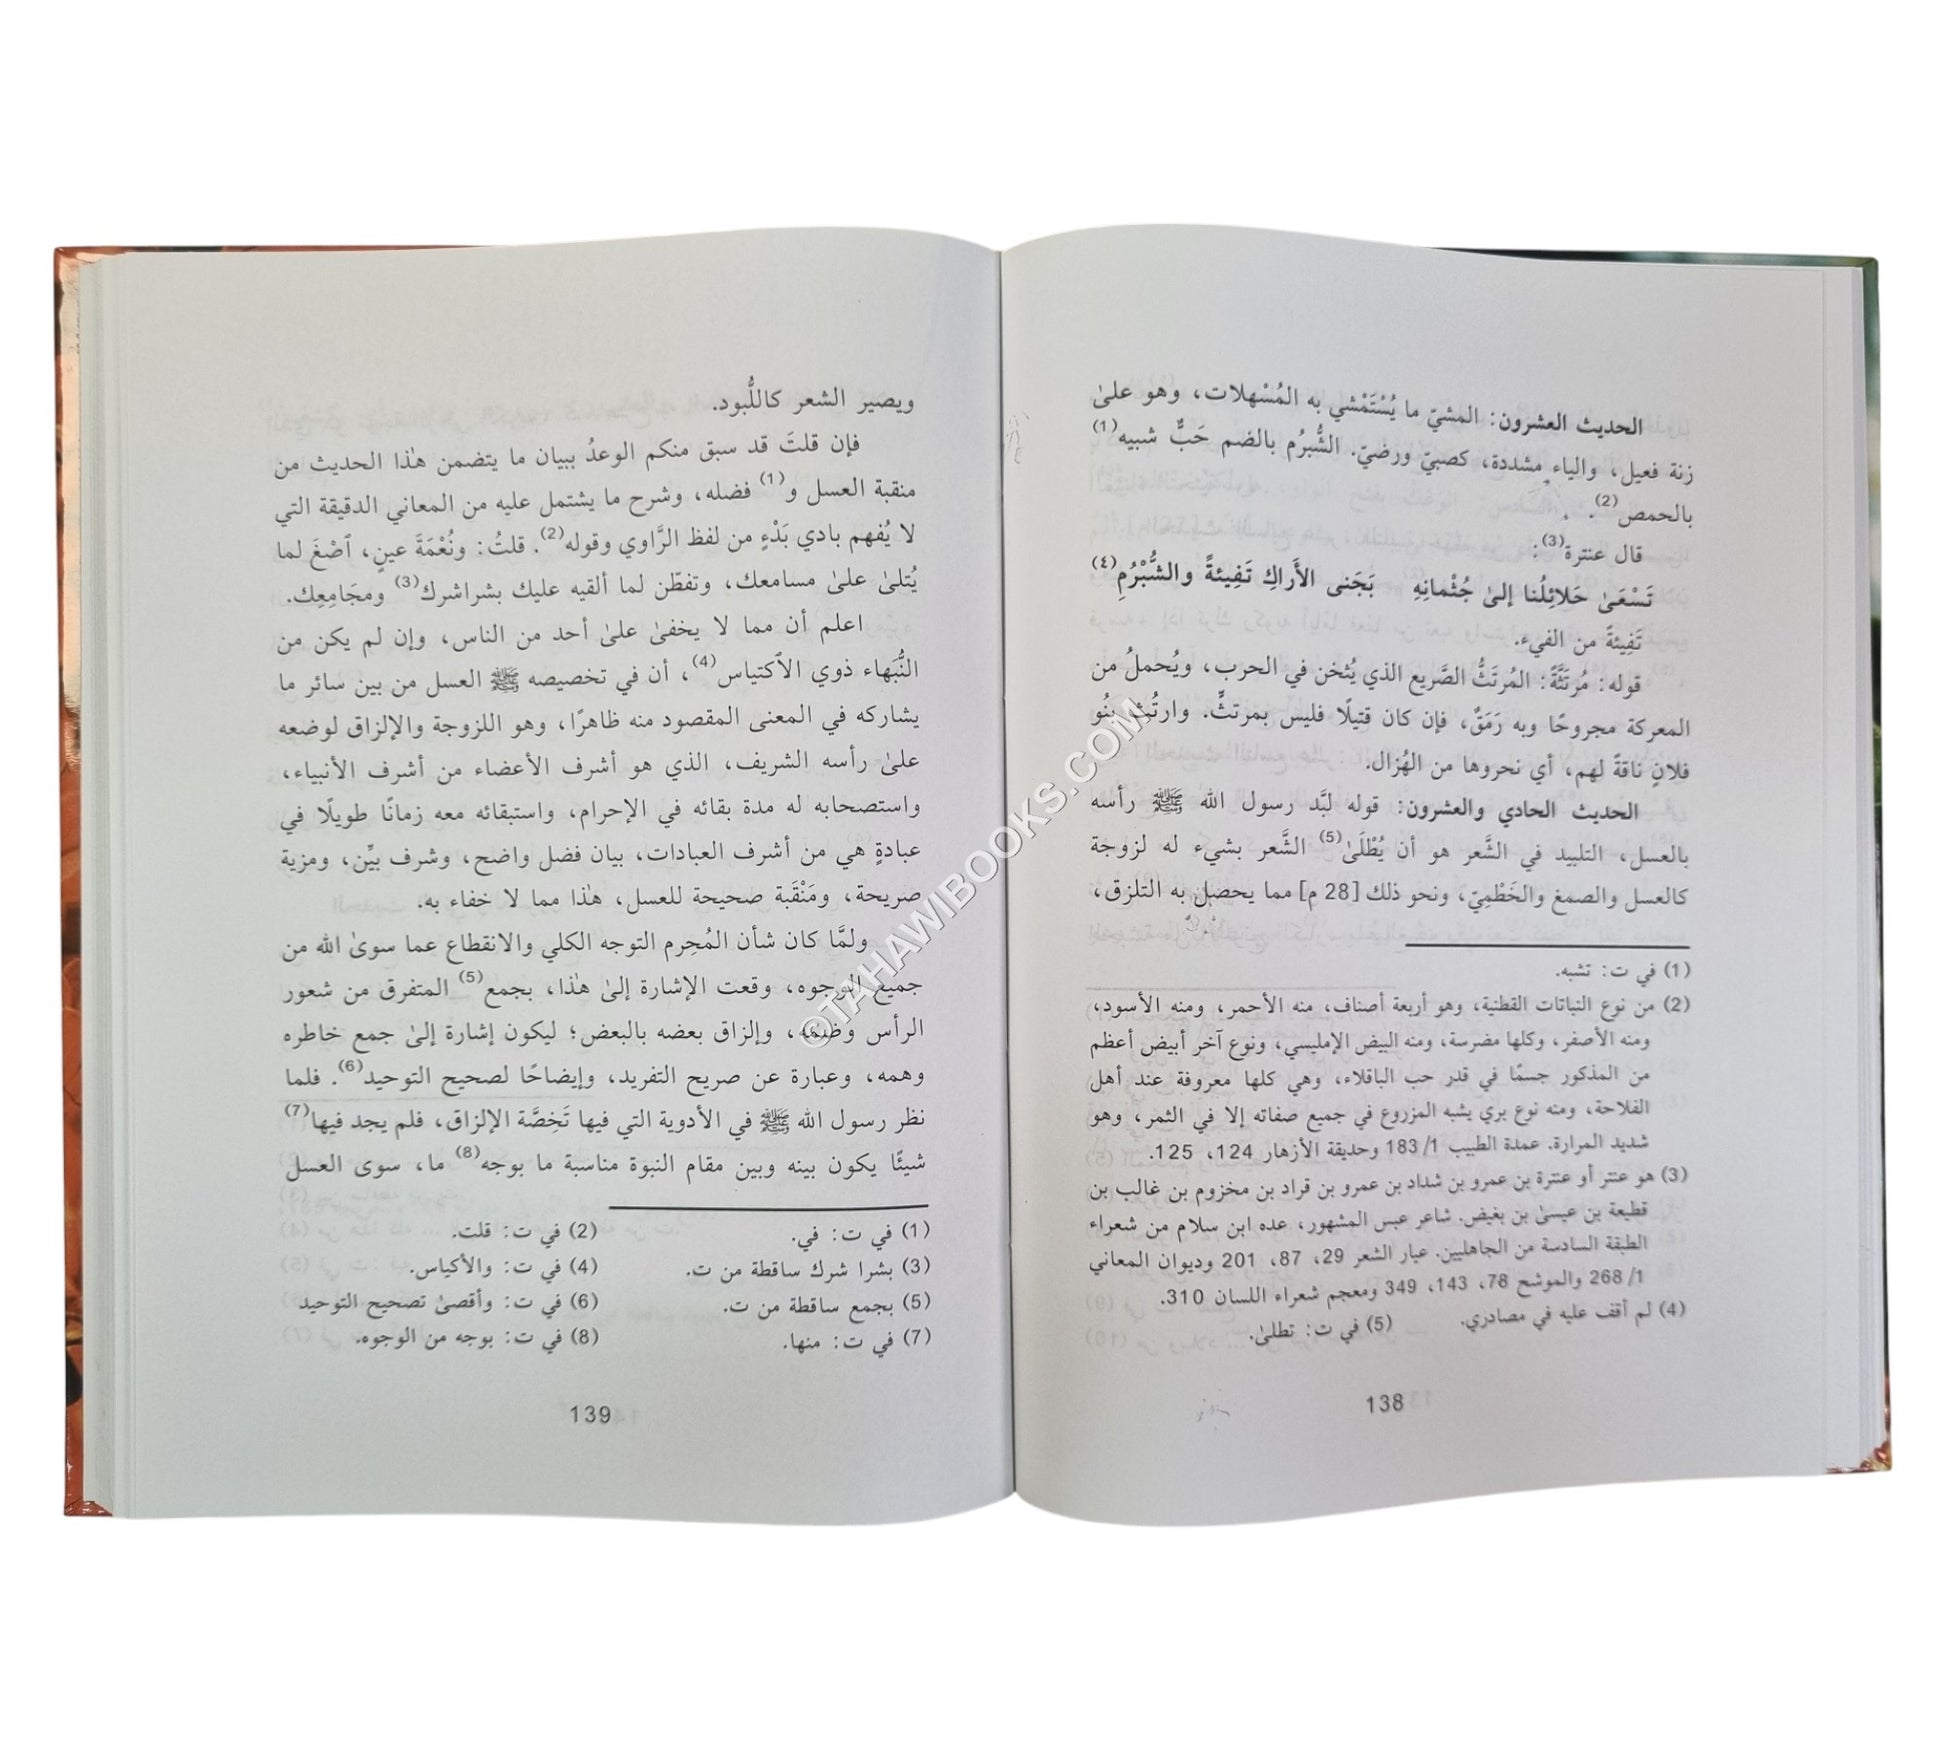 الحديث العشرون: المشيّ ما يُسْتَمْشي به المُسْهلات، وهو علىٰ
زنة فعيل، والياء مشددة، كصبيّ ورضيّ. الشُّبرُم بالضم حَبٌّ شبيه(1)
بالحمص(2).
قال عنترة(3):
تَسْعَىٰ حَلائِلُنا إلىٰ جُثْمانِهِ بَجَنى الأَراكِ تَفِيئةً والشُّبْرُمِ(٤)
تَفِيئةً من الفيء.
قوله: مُرتَثَّةً: المُرتَثُّ الصَّريع الذي يُثخن في الحرب، ويُحملُ من
المعركة مجروحًا وبه رَمَقٌ، فإن كان قتيلًا فليس بمرتثٍّ. وارتُث بنُو
فلانٍ ناقةً لهم، أي نحروها من الهُزال.
الحديث الحادي والعشرون: قوله لبَّد رسول الله ﷺ رأسه
بالعسل، التلبيد في الشَّعر هو أن يُطْلَىٰ(5) الشَّعر بشيء له لزوجة
كالعسل والصمغ والخَطْمِيّ، ونحو ذلك [28 م] مما يحصل به التلزق،
(1) في ت: تشبه.
(2) من نوع النباتات القطنية، وهو أربعة أصناف، منه الأحمر، ومنه الأسود،
ومنه الأصفر، وكلها مضرسة، ومنه البيض الإمليسي، ونوع آخر أبيض أعظم
من المذكور جسمًا في قدر حب الباقلاء، وهي كلها معروفة عند أهل
الفلاحة، ومنه نوع بري يشبه المزروع في جميع صفاته إلا في الثمر، وهو
شديد المرارة. عمدة الطبيب 1/ 183 وحديقة الأزهار 124، 125.
(3) هو عنتر أو عنترة بن عمرو بن شداد بن عمرو بن قراد بن مخزوم بن غالب بن
قطيعة بن عيسىٰ بن بغيض. شاعر عبس المشهور، عده ابن سلام من شعراء
الطبقة السادسة من الجاهليين. عيار الشعر 29، 87، 201 وديوان المعاني
1/ 268 والموشح 78، 143، 349 ومعجم شعراء اللسان 310.
(4) لم أقف عليه في مصادري. (5) في ت: تطلىٰ.
138
ويصير الشعر كاللُّبود.
فإن قلتَ قد سبق منكم الوعدُ ببيان ما يتضمن هٰذا الحديث من
منقبة العسل و(1) فضله، وشرح ما يشتمل عليه من المعاني الدقيقة التي
لا يُفهم بادي بَدْءٍ من لفظ الرَّاوي وقوله(2). قلتُ: ونُعْمَةَ عينٍ، ٱصْغَ لما
يُتلىٰ علىٰ مسامعك، وتفطّن لما ألقيه عليك بشراشرك(3) ومجَامِعِك.
اعلم أن مما لا يخفىٰ علىٰ أحد من الناس، وإن لم يكن من
النُّبَهاء ذوي الٱكتياس(4)، أن في تخصيصه ﷺ العسل من بين سائر ما
يشاركه في المعنى المقصود منه ظاهرًا، وهو اللزوجة والإلزاق لوضعه
علىٰ رأسه الشريف، الذي هو أشرف الأعضاء من أشرف الأنبياء،
واستصحابه له مدة بقائه في الإحرام، واستبقائه معه زمانًا طويلًا في
عبادةٍ هي من أشرف العبادات، بيان فضل واضح، وشرف بيِّن، ومزية
صريحة، ومَنْقَبة صحيحة للعسل، هٰذا مما لا خفاء به.
ولمَّا كان شأن المُحِرم التوجه الكلي والانقطاع عما سوىٰ الله من
جميع الوجوه، وقعت الإشارة إلىٰ هٰذا، بجمع(5) المتفرق من شعور
الرأس وضمّه، وإلزاق بعضه بالبعض؛ ليكون إشارة إلىٰ جمع خاطره
وهمه، وعبارة عن صريح التفريد، وإيضاحًا لصحيح التوحيد(6). فلما
نظر رسول الله ﷺ في الأدوية التي فيها تَخِصَّة الإلزاق، فلم يجد فيها(7)
شيئًا يكون بينه وبين مقام النبوة مناسبة ما بوجه(8) ما، سوى العسل
(1) في ت: في. (2) في ت: قلت.
(3) بشرا شرك ساقطة من ت. (4) في ت: والأكياس.
(5) بجمع ساقطة من ت. (6) في ت: وأقصىٰ تصحيح التوحيد
(7) في ت: منها. (8) في ت: بوجه من الوجوه.
139
©TAHAWIBOOKS.COM